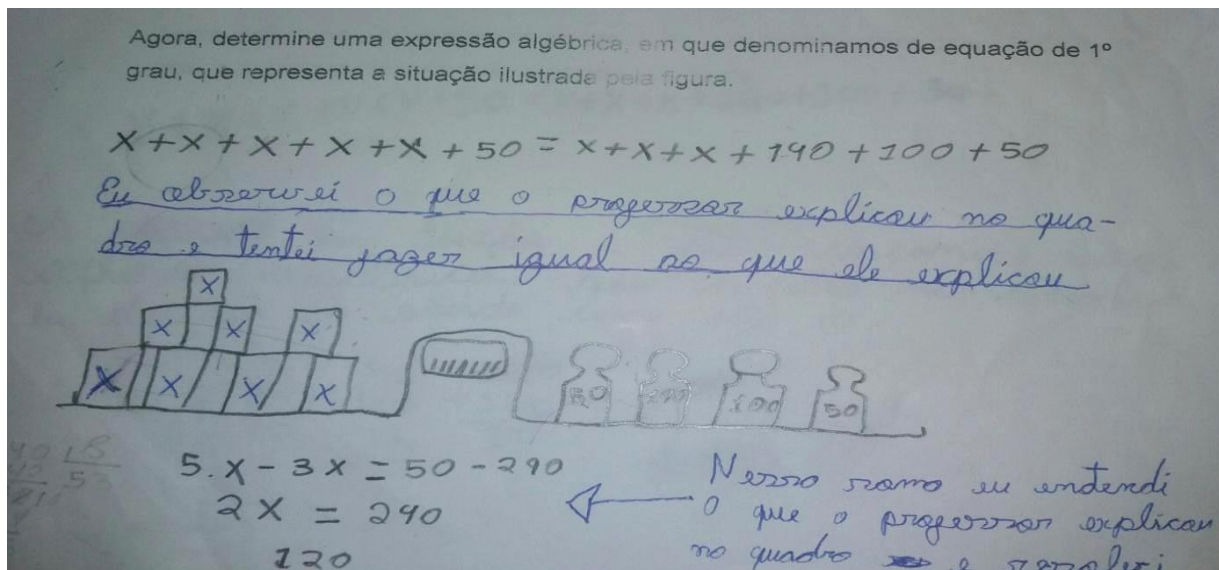 Agora, determine uma expressão algébrica, em que denominamos de equação de 1º
grau, que representa a situação ilustrada pela figura.
X+X+X+X+X+50=X+X+X+190+100+50
Eu observei o que o professor explicou no qua-
dro e tentei fazer igual ao que ele explicou
X
X X X
X X X X
50 100 50
5.X-3X=50-290
2X=240
120
Nesso ramo eu entendi
o que o professor explicou
no quadro e